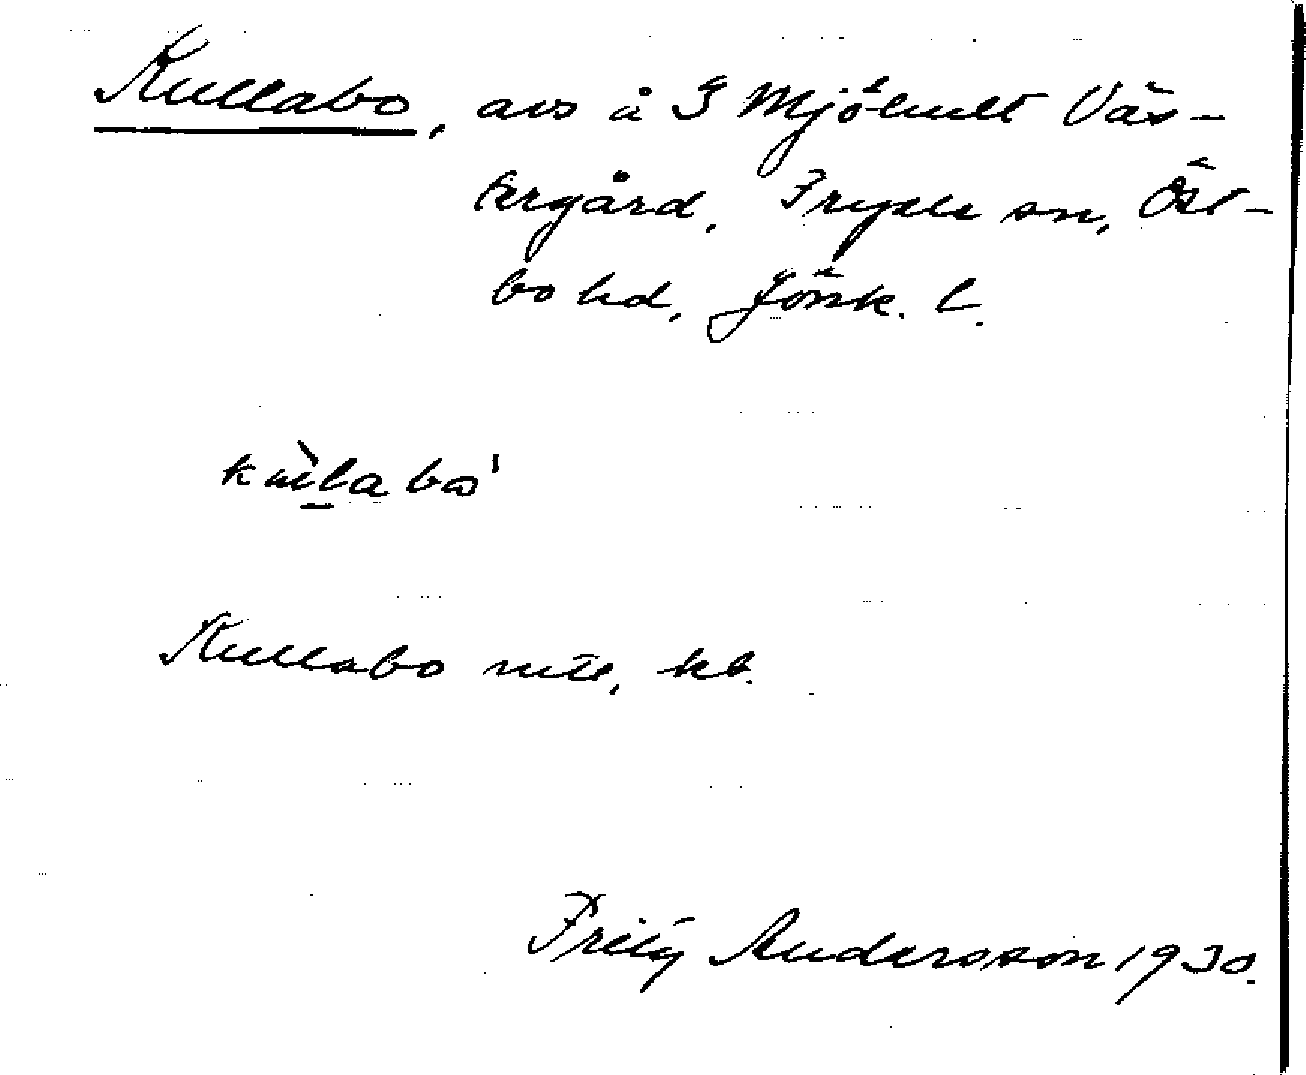 Kullabo, avs å I Mjöhult Väs-
tergård, Tryde sn, Öst-
bo hd, Jönk. l.
kùlabo'
Kullabo kb.
Fritz Andersson 1930.